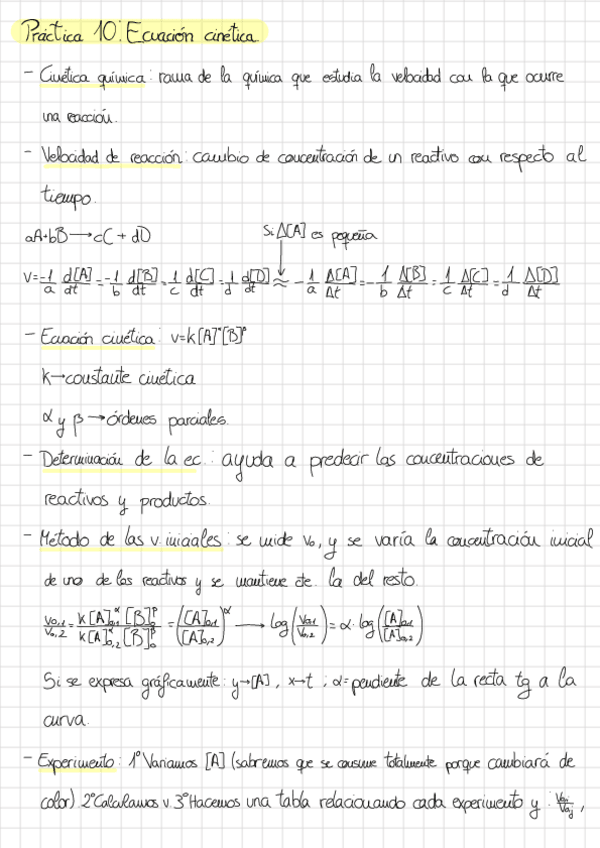 Práctica 10: Ecuación cinética
- Cinética química: rama de la química que estudia la velocidad con la que ocurre
una reacción.
- Velocidad de reacción: cambio de concentración de un reactivo con respecto al
tiempo.
aA+bB→cC+dD Si Δ[A] es pequeña
v=-1/a d[A]/dt=-1/b d[B]/dt=1/c d[C]/dt=1/d d[D]/dt≈-1/a Δ[A]/Δt=-1/b Δ[B]/Δt=1/c Δ[C]/Δt=1/d Δ[D]/Δt
- Ecuación cinética: v=k[A]^α[B]^β
k→constante cinética
α y β→órdenes parciales.
- Determinación de la ec.: ayuda a predecir las concentraciones de
reactivos y productos.
- Método de las v. iniciales: se mide v₀, y se varía la concentración inicial
de uno de los reactivos y se mantiene cte. la del resto.
v₀,₁/v₀,₂=k[A]₀,₁^α[B]₀^β/k[A]₀,₂^α[B]₀^β=([A]₀,₁/[A]₀,₂)^α→log(v₀,₁/v₀,₂)=α·log([A]₀,₁/[A]₀,₂)
Si se expresa gráficamente: y→[A], x→t; α=pendiente de la recta tg a la
curva.
- Experimento: 1º Variamos [A] (sabremos que se consume totalmente porque cambiará de
color). 2º Calculamos v. 3º Hacemos una tabla relacionando cada experimento y